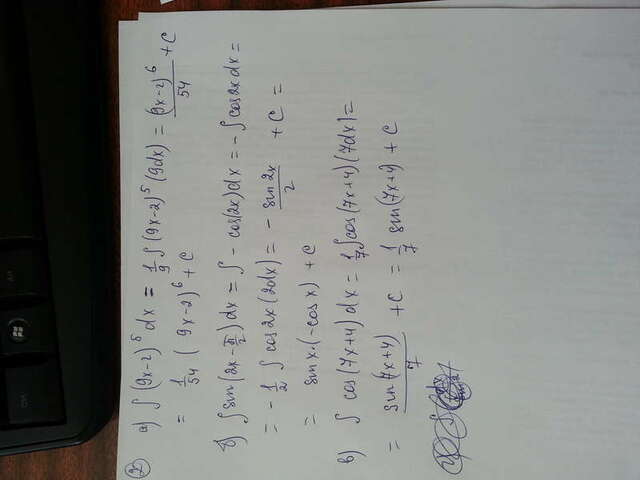 2
а) ∫(9x-2)⁵dx = 1/9 ∫(9x-2)⁵(9dx) = (9x-2)⁶/54 + C
= 1/54 (9x-2)⁶ + C
б) ∫sin(2x-π/2)dx = ∫-cos(2x)dx = -∫cos2xdx =
= -1/2 ∫cos2x(2dx) = - sin2x/2 + C =
= sinx·(-cosx) + C
в) ∫cos(7x+4)dx = 1/7∫cos(7x+4)(7dx) =
= sin(7x+4)/7 + C = 1/7 sin(7x+4) + C